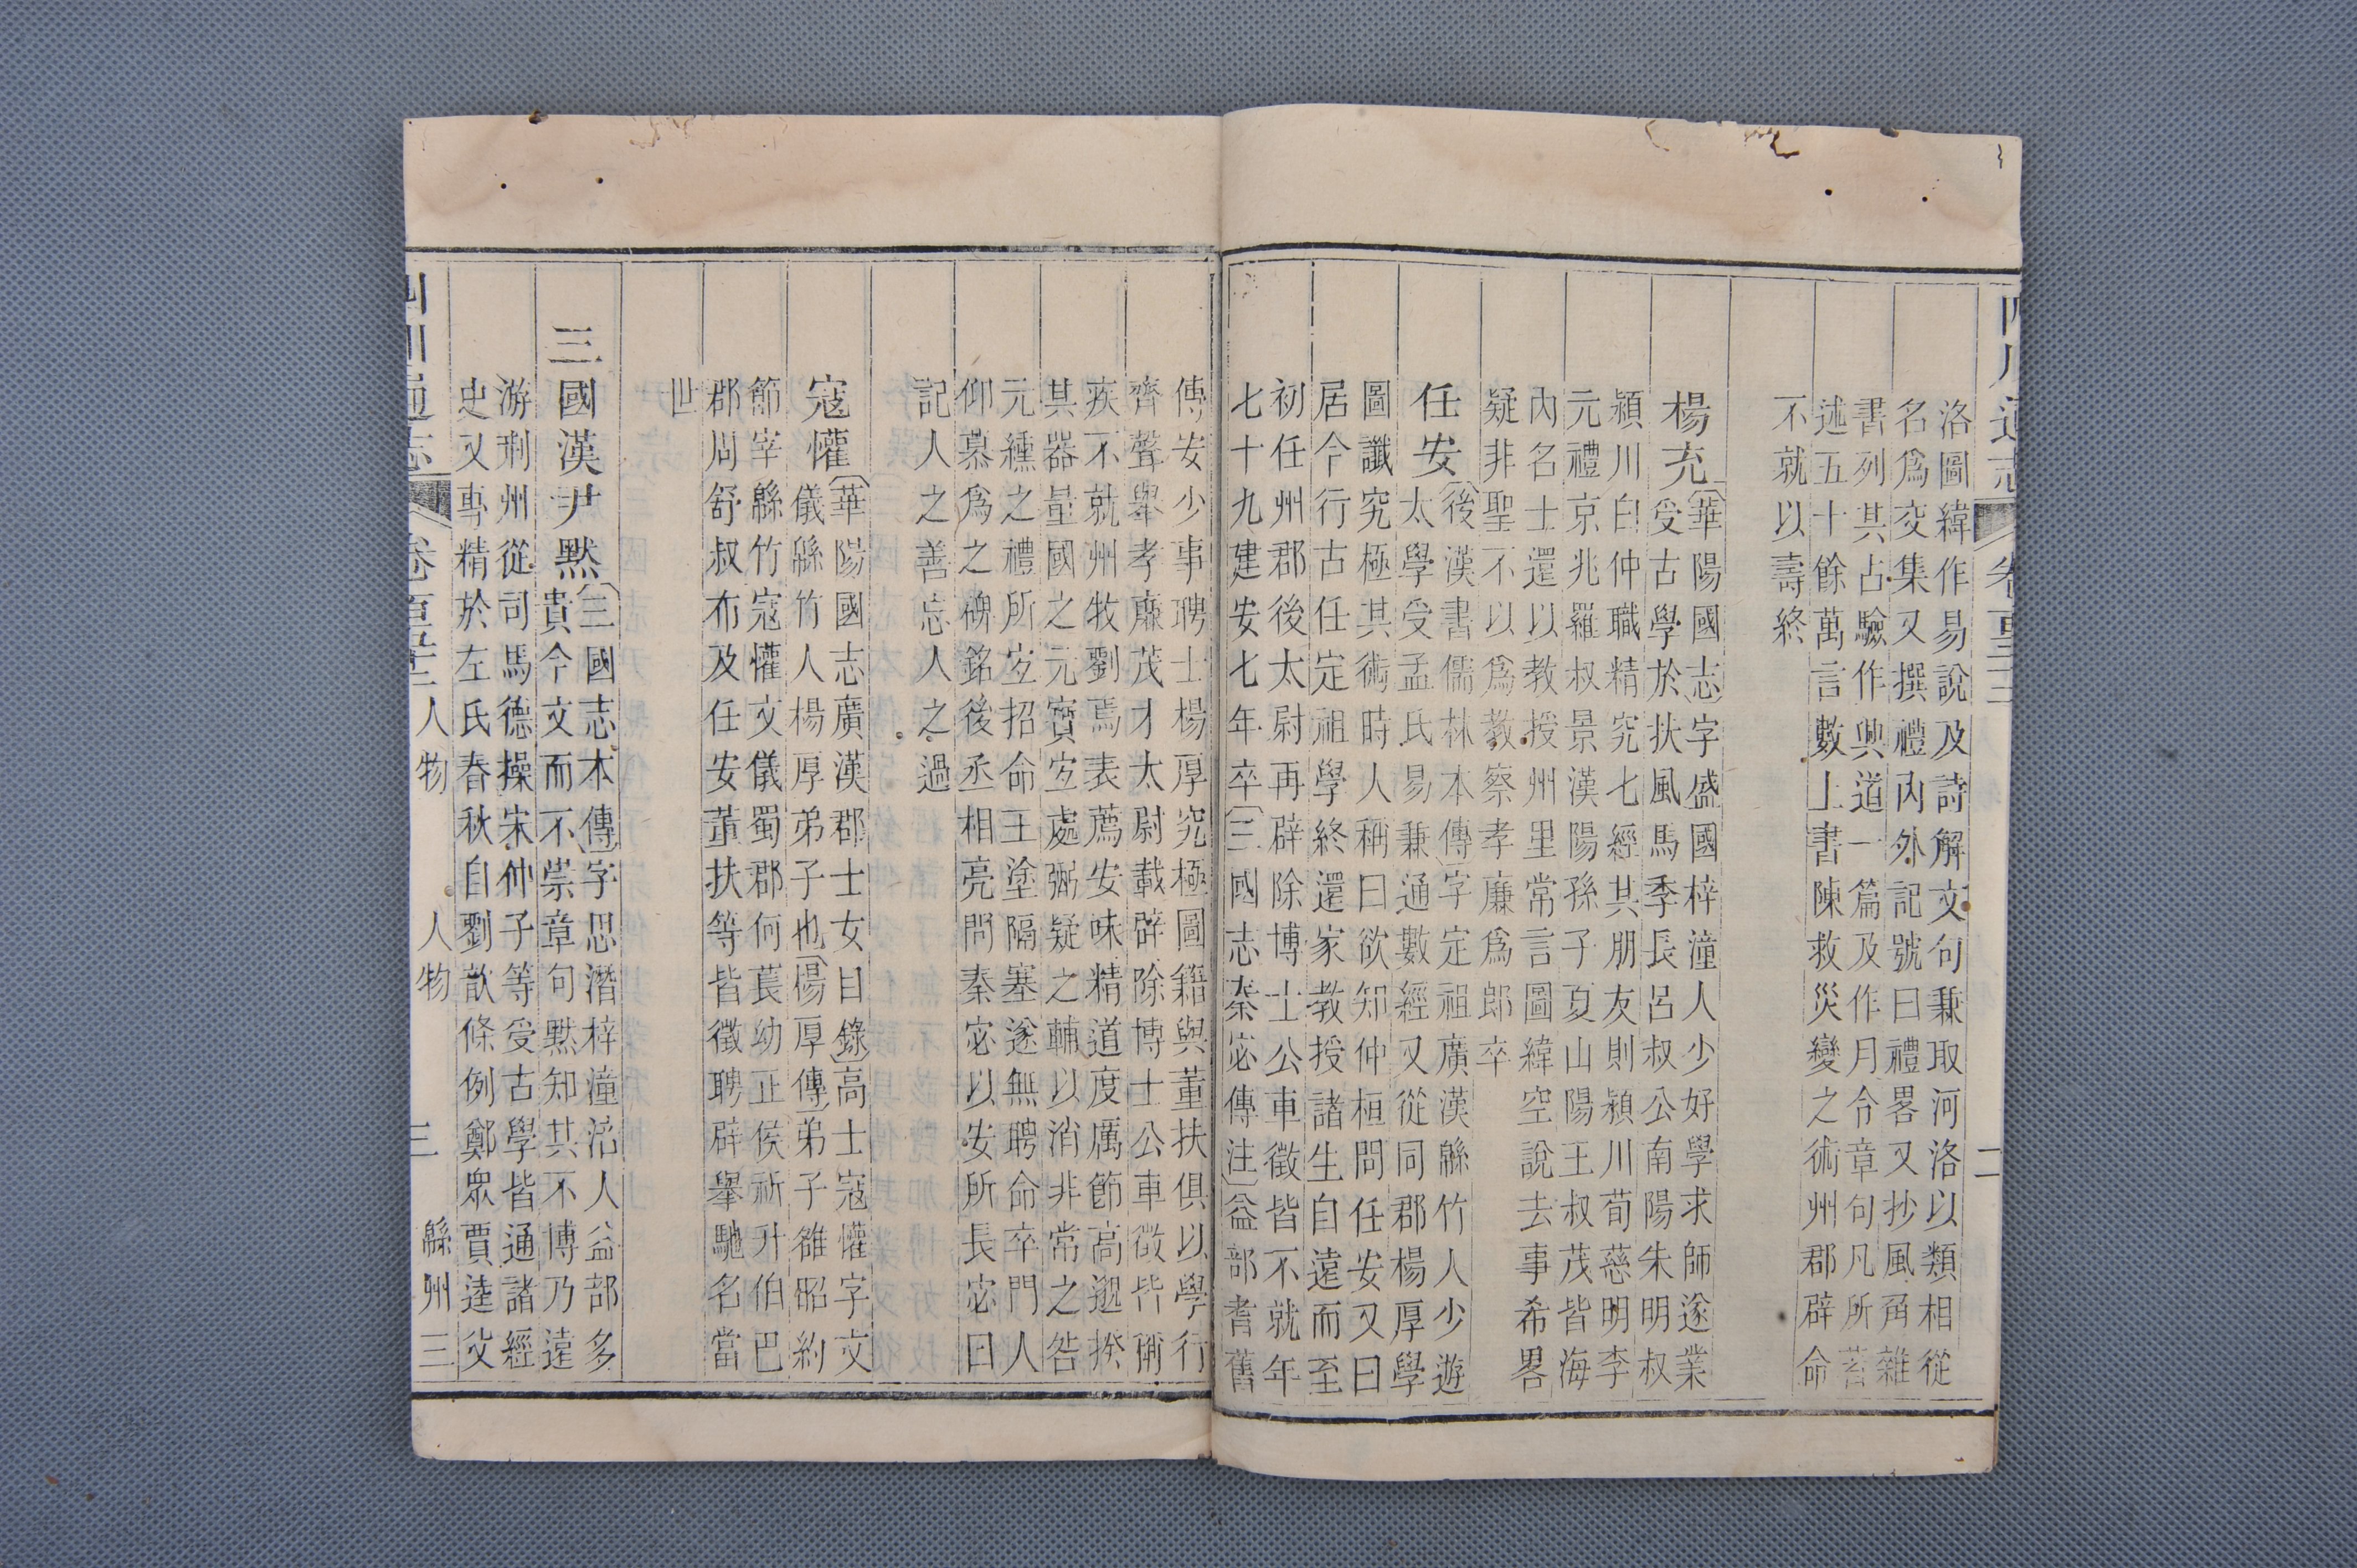 洛圖緯作易說及詩解文句兼取河洛以類相從
名爲交集又撰禮內外記號曰禮畧又抄風角雜
書列其占驗作興道一篇及作月令章句凡所著
述五十餘萬言數上書陳救災變之術州郡辟命
不就以壽終
楊充
〔華陽國志〕字盛國梓潼人少好學求師遂業
受古學於扶風馬季長呂叔公南陽朱明叔
潁川白仲職精究七經其朋友則潁川荀慈明李
元禮京兆羅叔景漢陽孫子夏山陽王叔茂皆海
內名士還以教授州里常言圖緯空說去事希畧
疑非聖不以爲教察孝廉爲郎卒
任安
〔後漢書儒林本傳〕字定祖廣漢緜竹人少遊
太學受孟氏易兼通數經又從同郡楊厚學
圖讖究極其術時人稱曰欲知仲桓問任安又曰
居今行古任定祖學終還家教授諸生自遠而至
初任州郡後太尉再辟除博士公車徵皆不就年
七十九建安七年卒〔三國志秦宓傳注〕益部耆舊
傳安少事聘士楊厚究極圖籍與董扶俱以學行
齊聲舉孝廉茂才太尉載辟除博士公車徵皆稱
疾不就州牧劉焉表薦安味精道度厲節高邈揆
其器量國之元寶宜處弼疑之輔以消非常之咎
元纁之禮所宜招命王塗隔塞遂無聘命卒門人
仰慕爲之碑銘後丞相亮問秦宓以安所長宓曰
記人之善忘人之過
寇懽
〔華陽國志廣漢郡士女目錄〕高士寇懽字文
儀緜竹人楊厚弟子也〔楊厚傳〕弟子雒昭約
節宰緜竹寇懽文儀蜀郡何萇幼正侯祈升伯巴
郡周舒叔布及任安董扶等皆徵聘辟舉馳名當
世
三國漢尹默
〔三國志本傳〕字思潛梓潼涪人益部多
貴今文而不崇章句默知其不博乃遠
游荆州從司馬德操宋仲子等受古學皆通諸經
史又專精於左氏春秋自劉歆條例鄭眾賈逵父
四川通志
人物 人物 三 緜州三